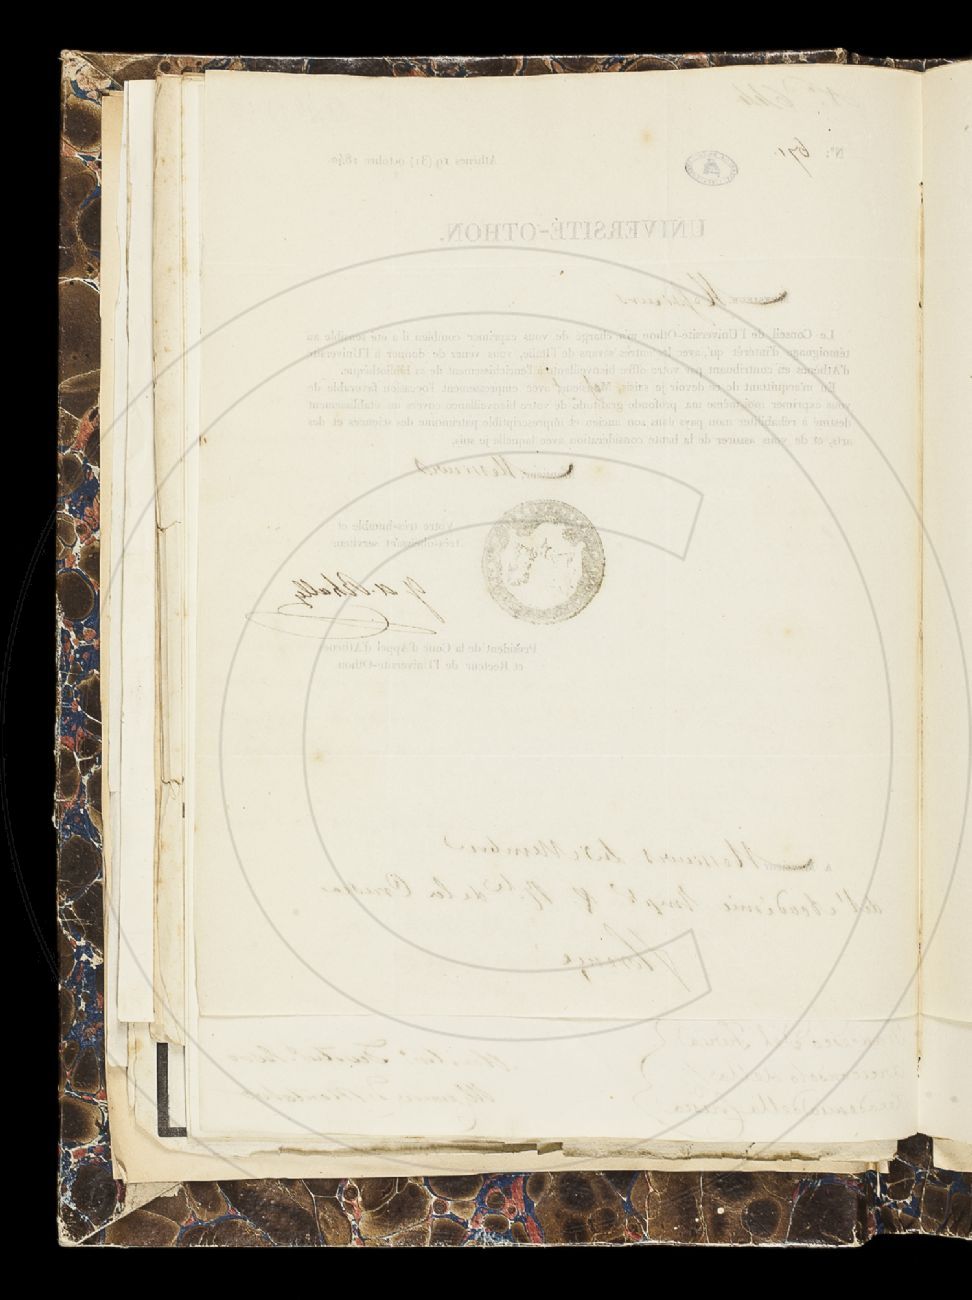 Nº: 671.
Athènes 19 (31) octobre 1840
UNIVERSITÉ-OTHON.
Messieurs
Le Conseil de l'Université-Othon m'a chargé de vous exprimer combien il a été sensible au
témoignage d'intérêt qu'avec les autres savans de l'Italie, vous venez de donner à l'Université
d'Athènes en contribuant par votre offre bienveillante à l'enrichissement de sa bibliothèque.
En m'acquittant de ce devoir je saisis, avec empressement l'occasion favorable de
vous exprimer moi-même ma profonde gratitude de votre bienveillance envers un établissement
destiné à réhabiliter mon pays dans son ancien et imprescriptible patrimoine des sciences et des
arts, et de vous assurer de la haute considération avec laquelle je suis,
Messieurs
Votre très-humble et
très-obéissant serviteur
Président de la Cour d'Appel d'Athènes
et Recteur de l'Université-Othon.
à Messieurs les Membres
de l'Académie de la Crusca
Florence